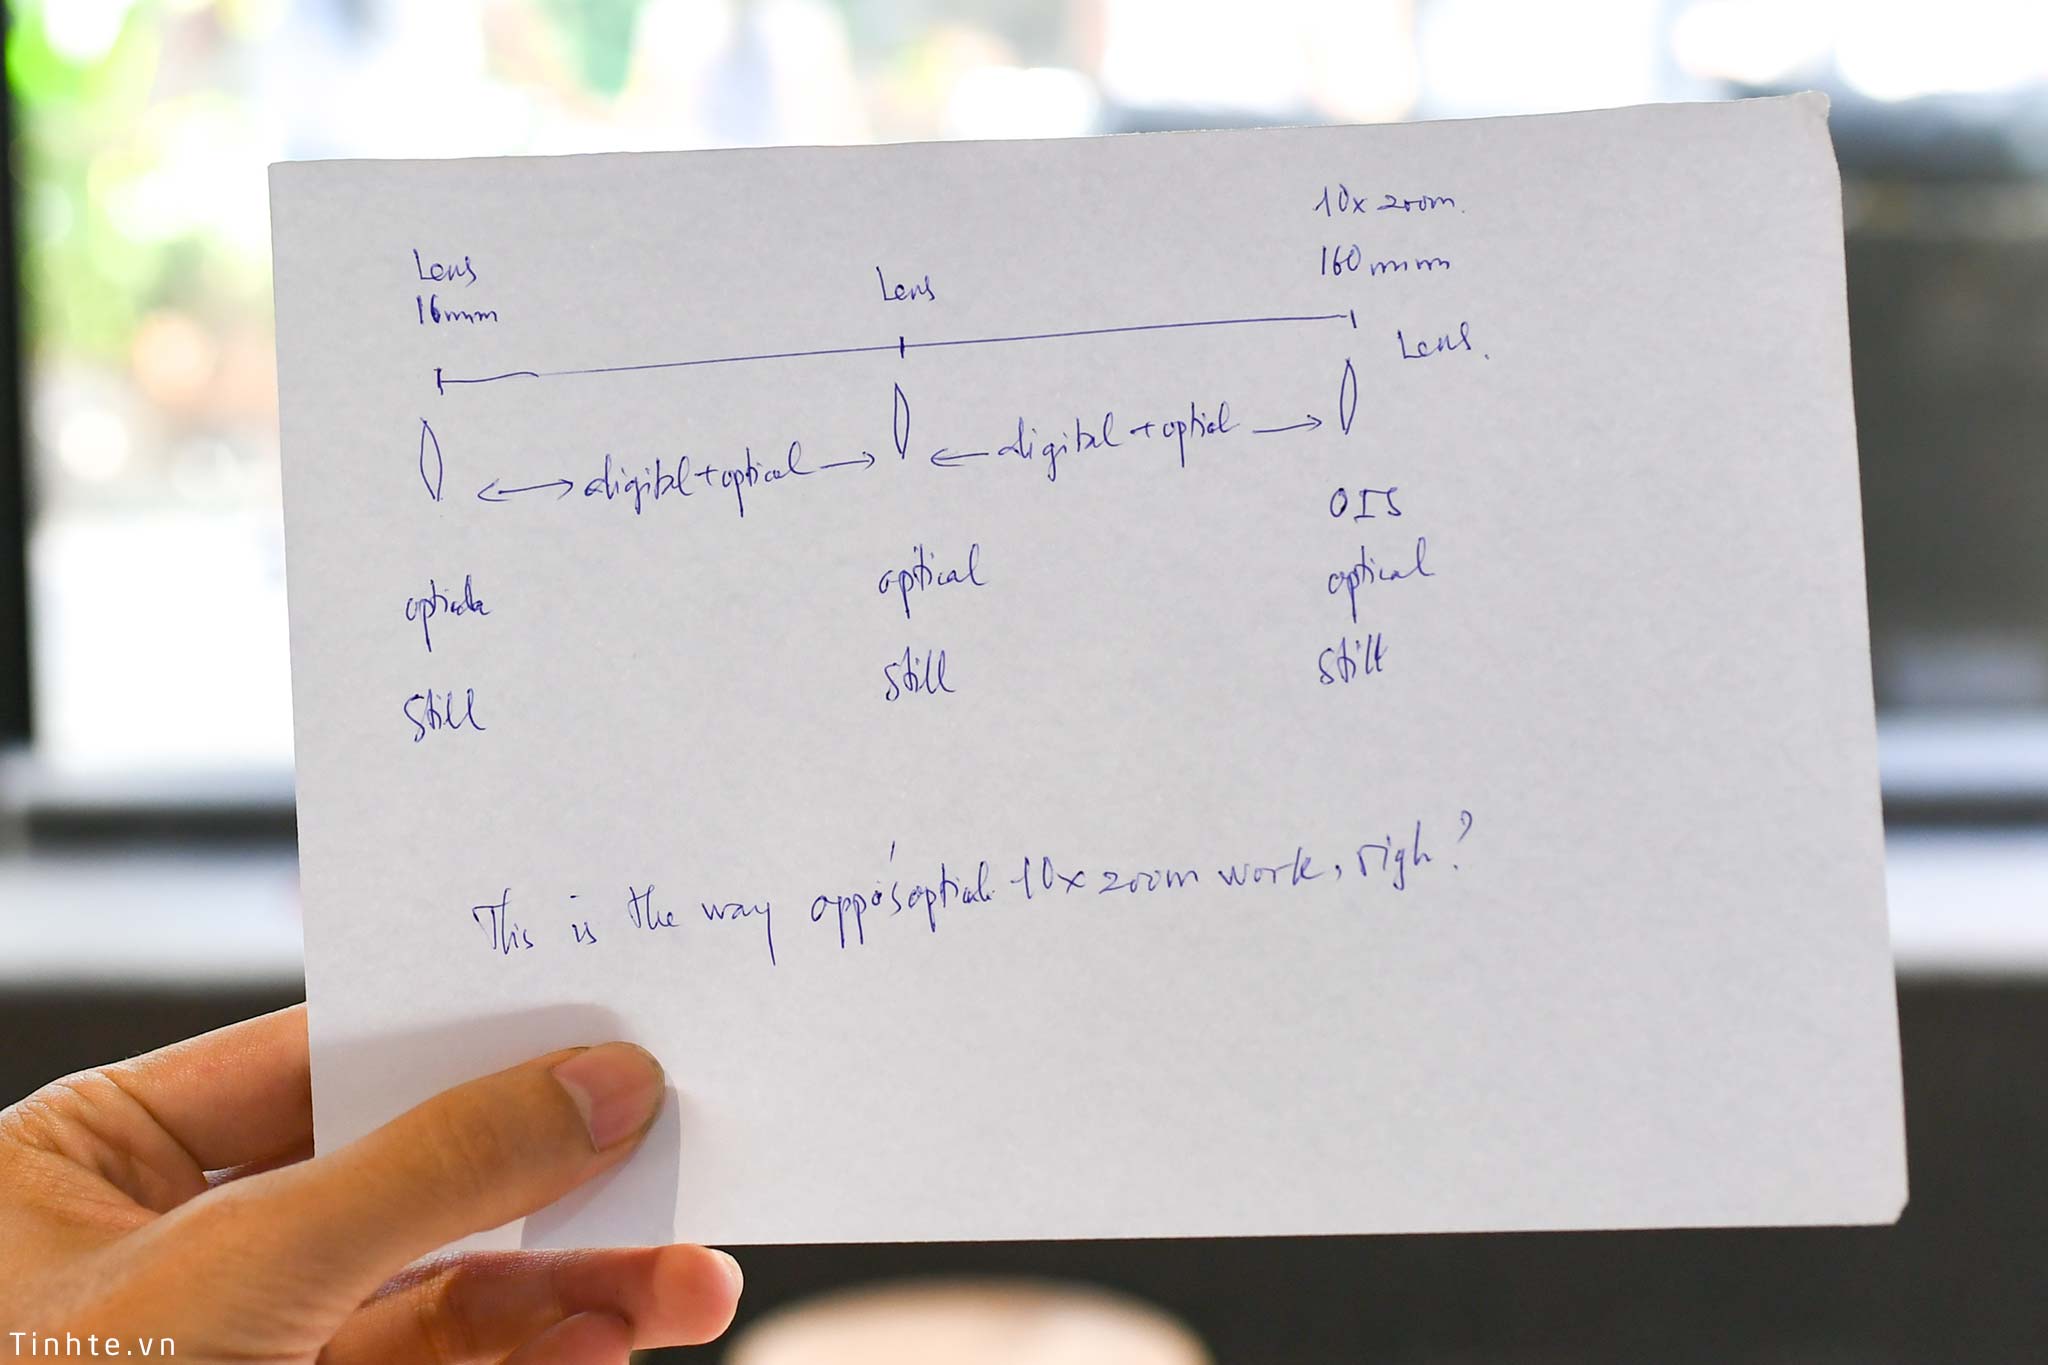 10x zoom.
160mm
Lens
16mm
Lens
Lens.
digital + optical
digital + optical
OIS
optical
optical
Still
still
still
This is the way oppo's optical 10x zoom work, righ?
Tinhte.vn